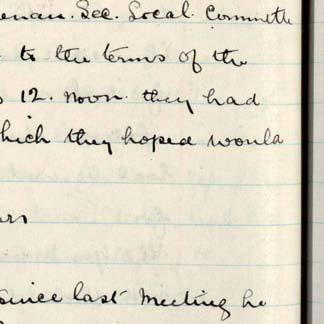 Sec. Local. Committe
to the terms of the
12. noon. they had
which they hoped would
since last Meeting he